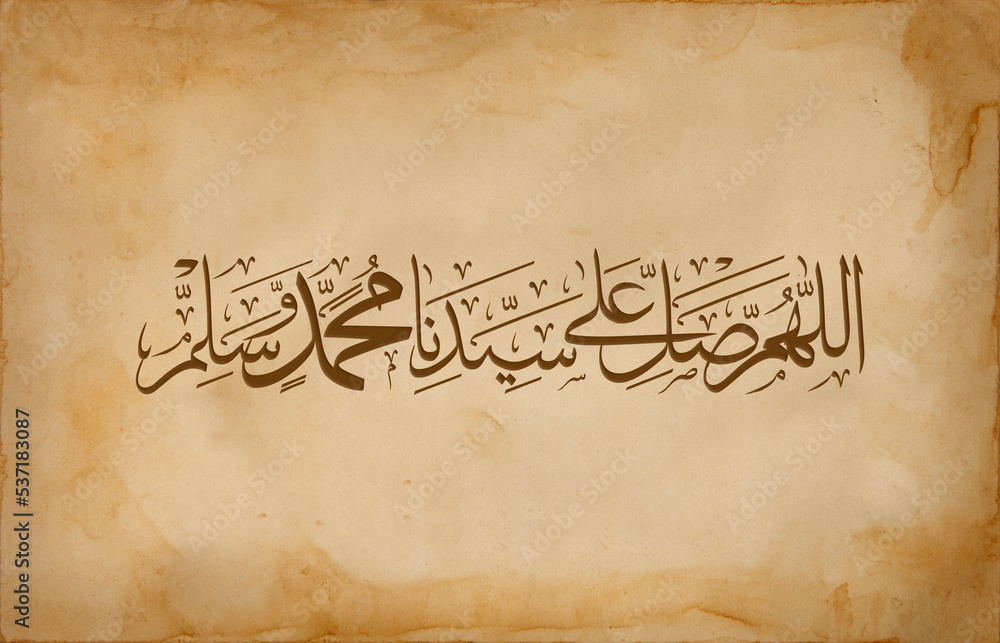 اللّٰهُمَّ صَلِّ عَلَى سَيِّدِنَا مُحَمَّدٍ وَّسَلِّمْ
Adobe Stock | #537183087